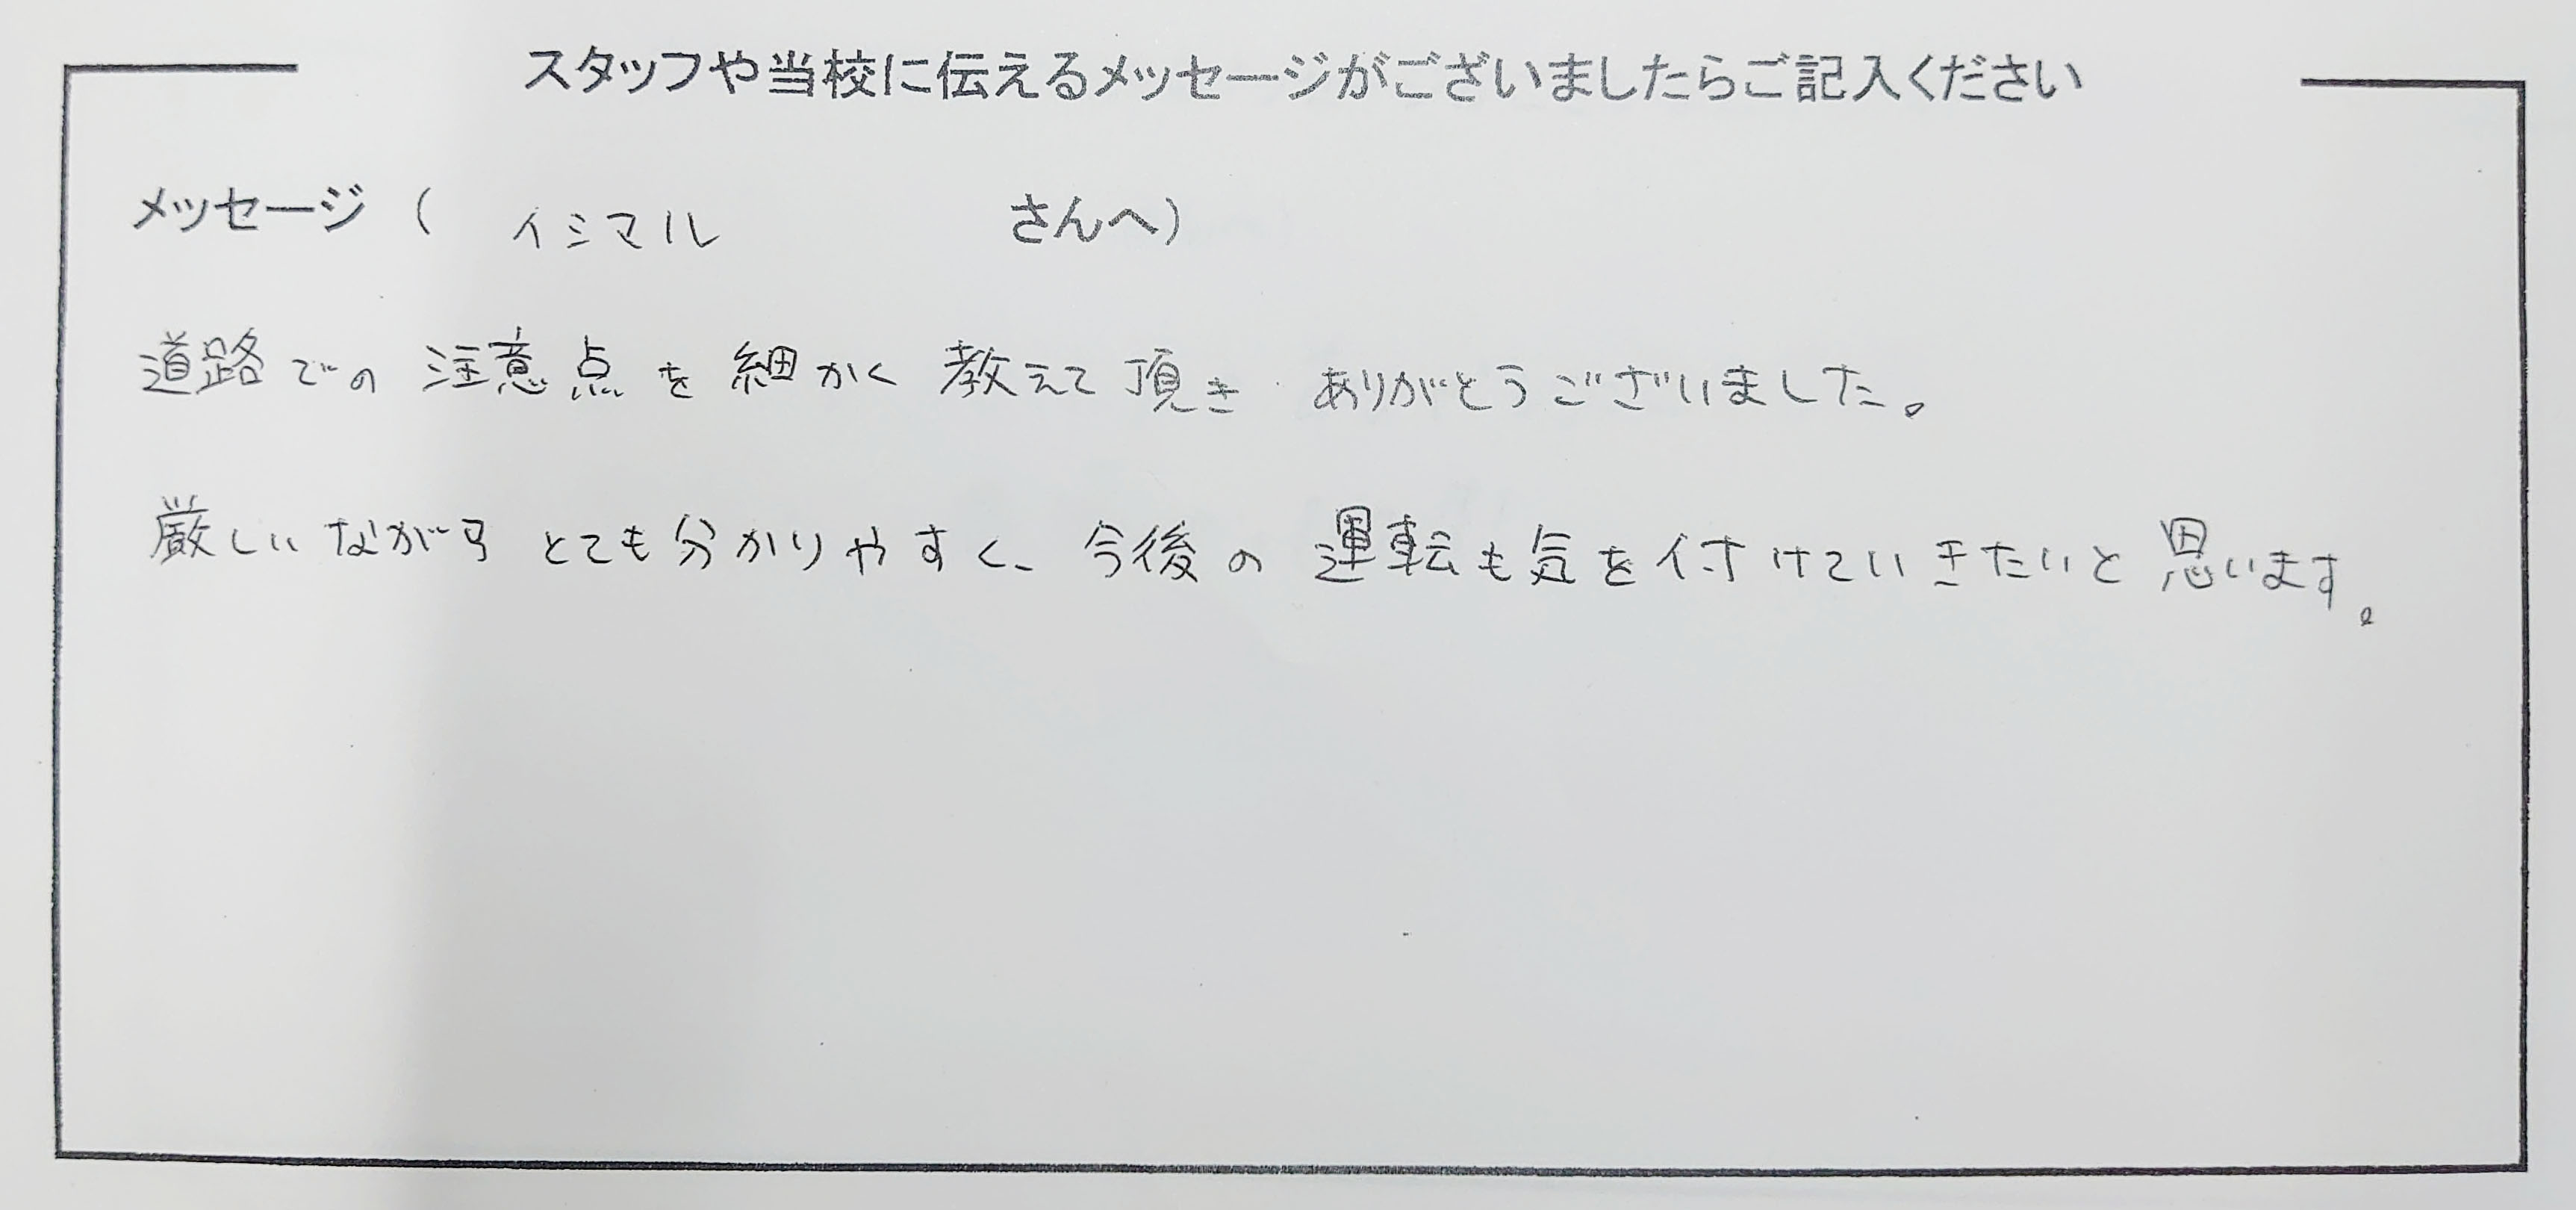 スタッフや当校に伝えるメッセージがございましたらご記入ください
メッセージ（ イシマル さんへ）
道路での注意点を細かく教えて頂きありがとうございました。
厳しいながらとても分かりやすく、今後の運転も気を付けていきたいと思います。